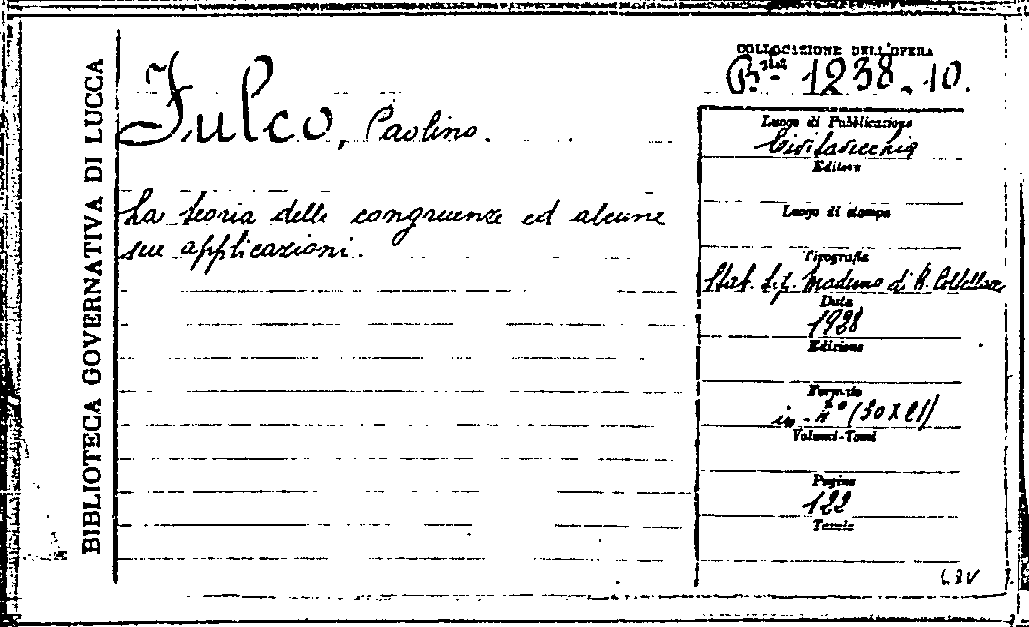 BIBLIOTECA GOVERNATIVA DI LUCCA
COLLOCAZIONE DELL'OPERA
B.ta 1238.10.
Fulco, Paolino.
La teoria delle congruenze ed alcune
sue applicazioni.
Luogo di Pubblicazione
Civitavecchia
Editore
Luogo di stampa
Tipografia
Stab. tip. Moderno di A.
Data
1928
Edizione
Formato
in-4° (30x21)
Volumi-Tomi
Pagine
122
Tavole